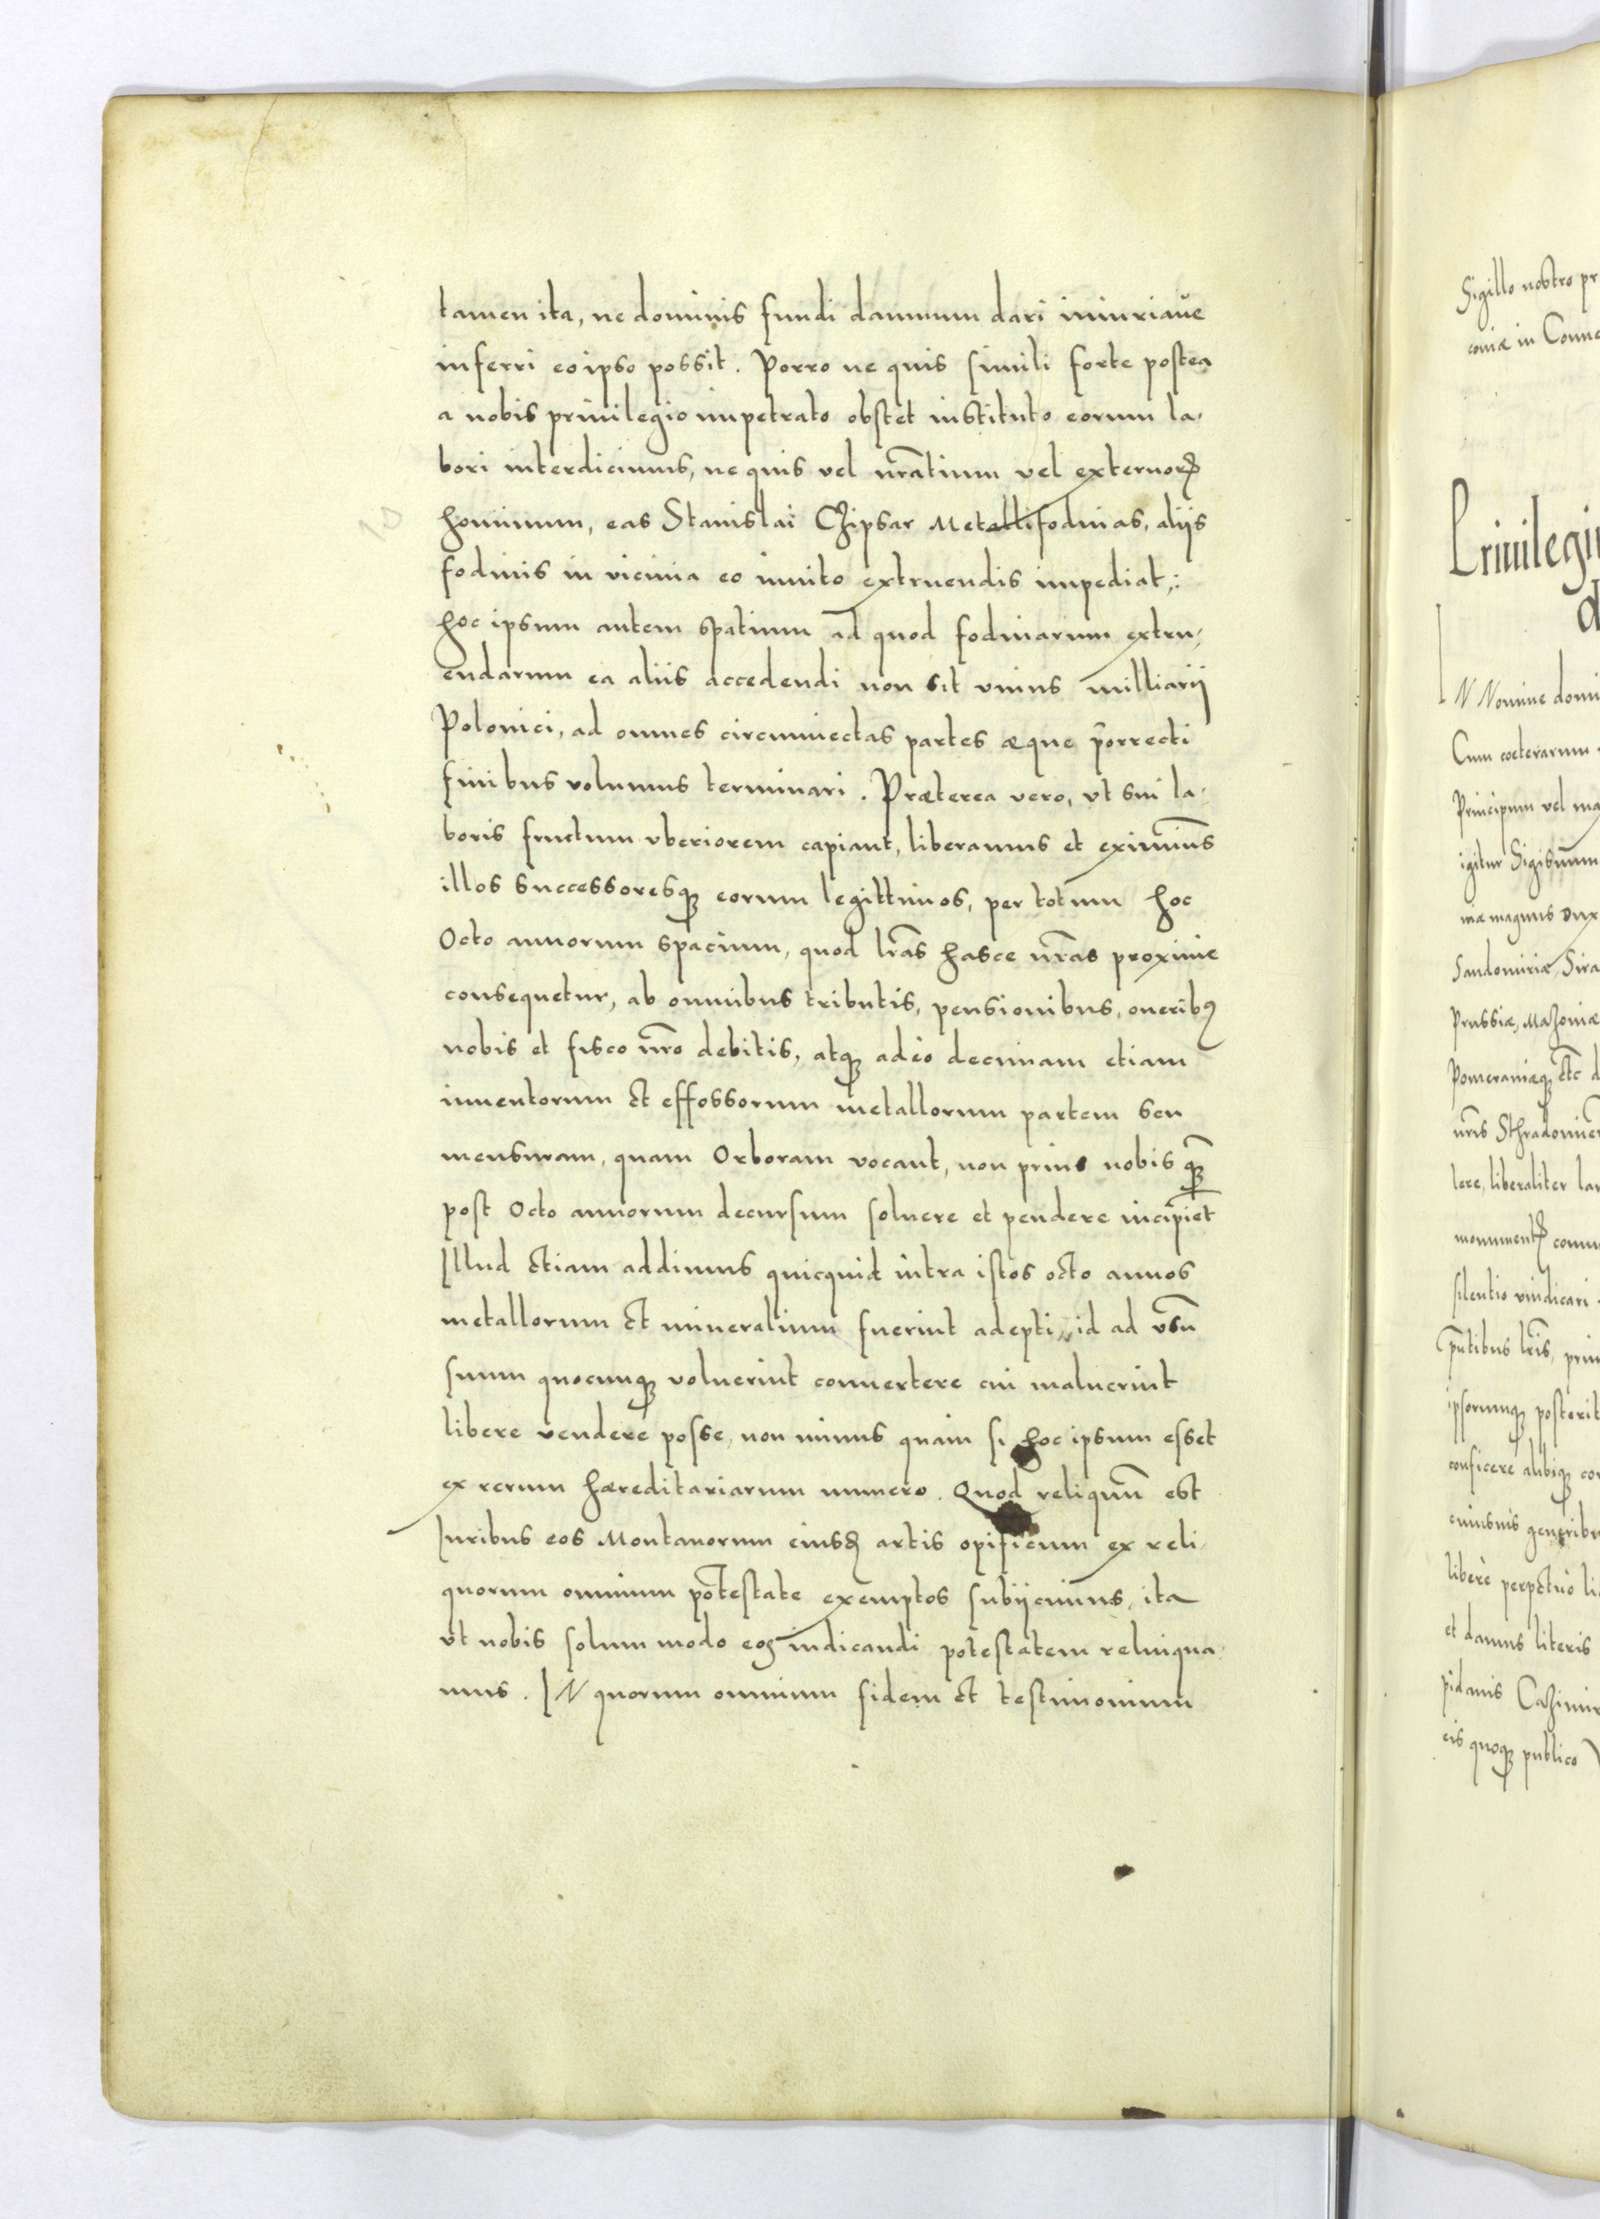 tamen ita, ne dominis fundi damnum dari iniuriaue
inferri eo ipso possit. Porro ne quis simili forte postea
a nobis priuilegio impetrato obstet instituto eorum la-
bori interdicimus, ne quis vel nr̄atium vel externorꝝ
hominum, eas Stanislai Chipsar Metallifodinas, aliis
fodinis in vicinia eo inuito extruendis impediat;
hoc ipsum autem spatium ad quod fodinarum extru-
endarum ea aliis accedendi non sit vnius milliarij
Polonici, ad omnes circumiectas partes æque porrecti
finibus volumus terminari. Præterea vero, vt sui la-
boris fructum vberiorem capiant, liberamus et eximim̄s
illos successoresqꝫ eorum legittimos, per totum hoc
Octo annorum spacium, quod lr̄as hasce nr̄as proxime
consequetur, ab omnibus tributis, pensionibus, oneribꝰ
nobis et fisco nr̄o debitis, atqꝫ adeo decimam etiam
inuentorum et effossorum metallorum partem seu
mensuram, quam Orboram vocant, non prius nobis qꝫ̄
post Octo annorum decursum soluere et pendere incipiet
Illud etiam addimus quicquid intra istos octo annos
metallorum et mineralium fuerint adepti, id ad vsū
suum quocunqꝫ voluerint conuertere cui maluerint
libere vendere posse, non minus quam si hoc ipsum esset
ex rerum hæreditariarum numero. Quod reliquū est
Iuribus eos Montanorum eiusꝺ artis opificum ex reli-
quorum omnium potestate exemptos subijcimus, ita
vt nobis solum modo eos iudicandi potestatem relinqua-
mus. IN quorum omnium fidem et testimonium
10
Sigillo nostro pr
couiæ in Conue
Priuilegiu
d
IN Nomine domi
Cum cœterarum
Principum vel ma
igitur Sigismun
niæ magnus Dux
Sandomiriæ, Sira
Prussiæ, Mazoniæ
Pomeraniæqꝫ etc d
nr̄is Sthradonien̄
lere, liberaliter lar
monumentꝭ comm
silentio vindicari
pn̄tibus lr̄is, priu
ipsorumqꝫ posterit
conficere alibiqꝫ cor
cuiusuis generibu
liberè perpetuò li
et damus literis
pidanis Cazimir
eis quoqꝫ publico